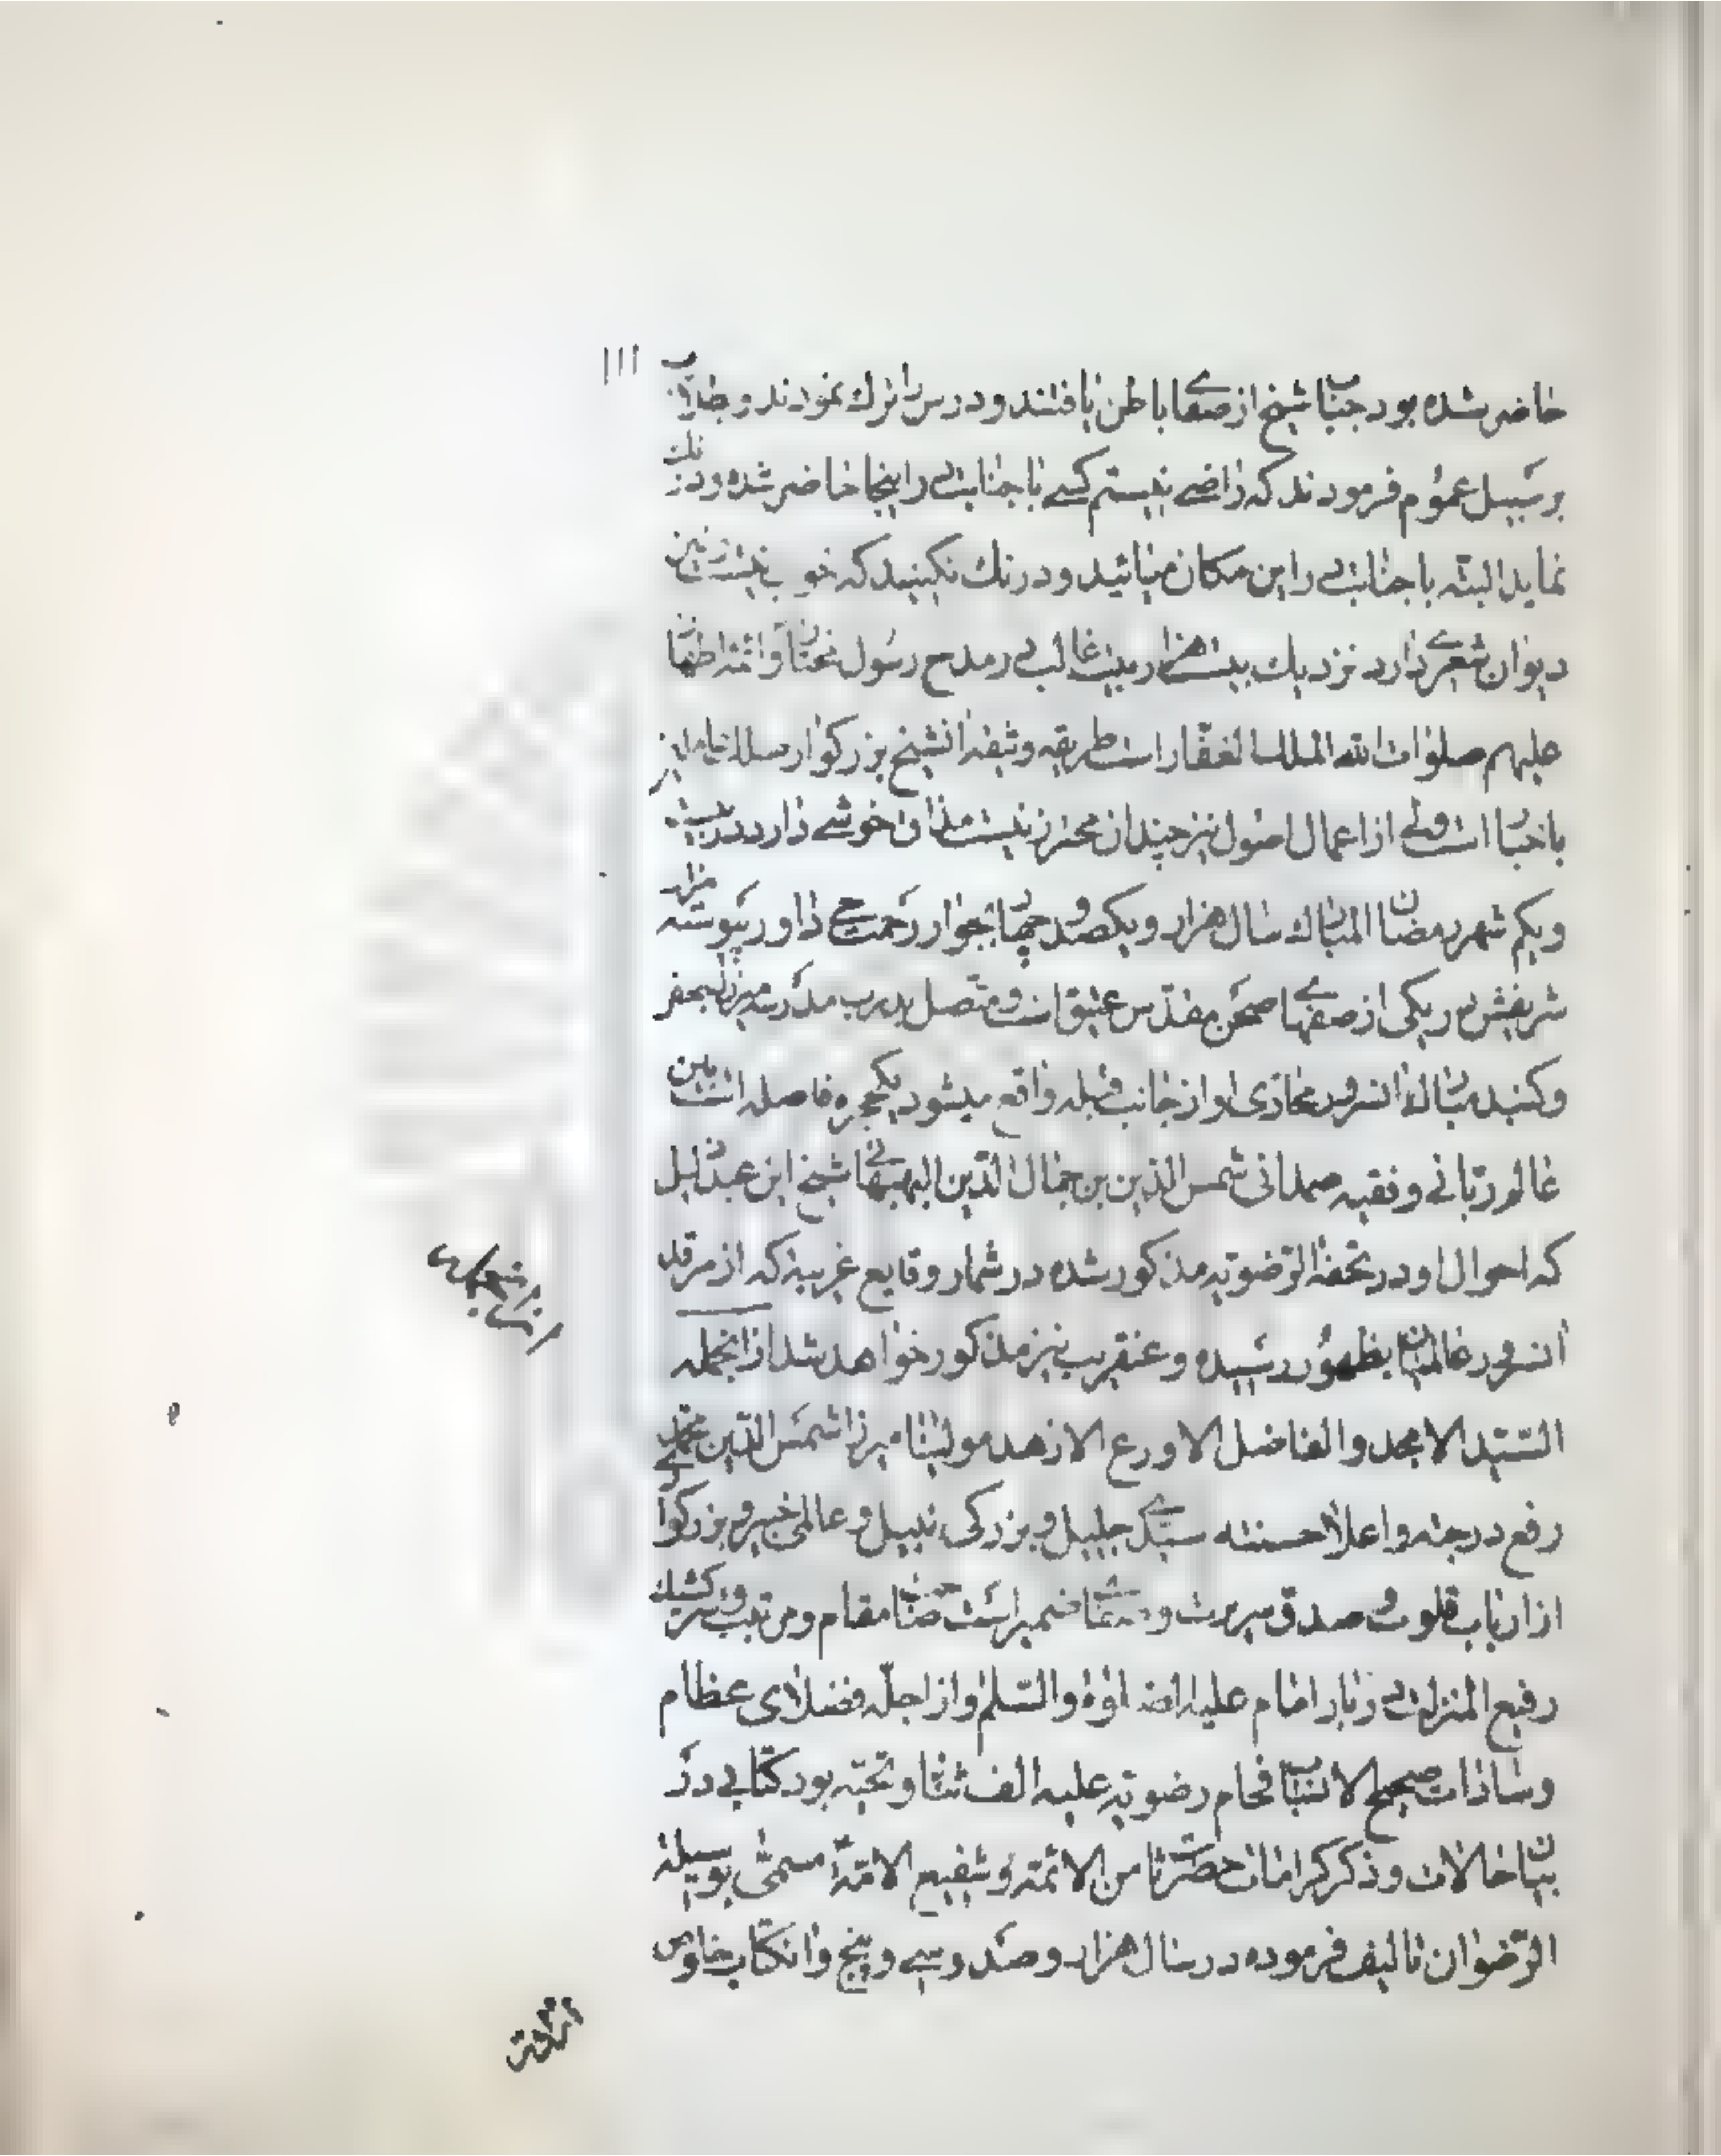 ۱۱۱
حاضر شده بود جناب شیخ از صفای باطن یافتند و درس را ترک نمودند و طلاب
بر سبیل عموم فرمودند که راضی نیستم کسی با جنابت در اینجا حاضر شده و درنک
نماید البته با جنابت در این مکان میائید و درنک نکنید که خوب نیست
دیوان شعری دارد نزدیک بیست هزار بیت غالب در مدح رسول مختار و ائمه اطهار
علیهم صلوات الله الملک الغفار است طریقه وثیقه انشیخ بزرکوار
باخبار است ولی از اعمال اصول نیز چندان محترز نیست مذاق خوشی دارد در بیست
ویکم شهر رمضان المبارک سال هزار ویکصد و چهار بجوار رحمت حی داور پیوسته مزار
شریفش در یکی از صفهای صحن مقدس عتیق است و متصل بدرب مدرسه میرزا جعفر
وکنبد مبارک انسرور محاذی او از جانب قبله واقع میشود یکحجره فاصله است بین
عالم ربانی و فقیه صمدانی شمس الدین بن جمال الدین البهبهانی شیخ ابن عبد الجلیل
که احوال او در تحفة الرضویه مذکور شده در شمار وقایع غریبه که از مرقد
انسرور عالمیان بظهور رسیده و عنقریب نیز مذکور خواهد شد ازانجمله
السید الامجد والفاضل الاورع الازهد مولینا میرزا شمس الدین محمد
رفع درجته واعلا حسنته سیدی جلیل و بزرکی نبیل و عالمی خبیر و بزرکوار
از ارباب قلوب و صدق سیرت و ضمیر است صاحب مقام و مرتب سرکشیک
رفیع المنزلت دربار امام علیه الصلوة والسلم و از اجله فضلای عظام
وسادات صحیح الانساب فخام رضویه علیه الف ثنا و تحیه بود کتابی در
بیان حالات و ذکر کرامات حضرت ثامن الائمه و شفیع الامه مسمی بوسیلة
الرضوان تالیف فرموده در سال هزار و صد و سی و پنج وانکتاب حاوی
ازانجمله